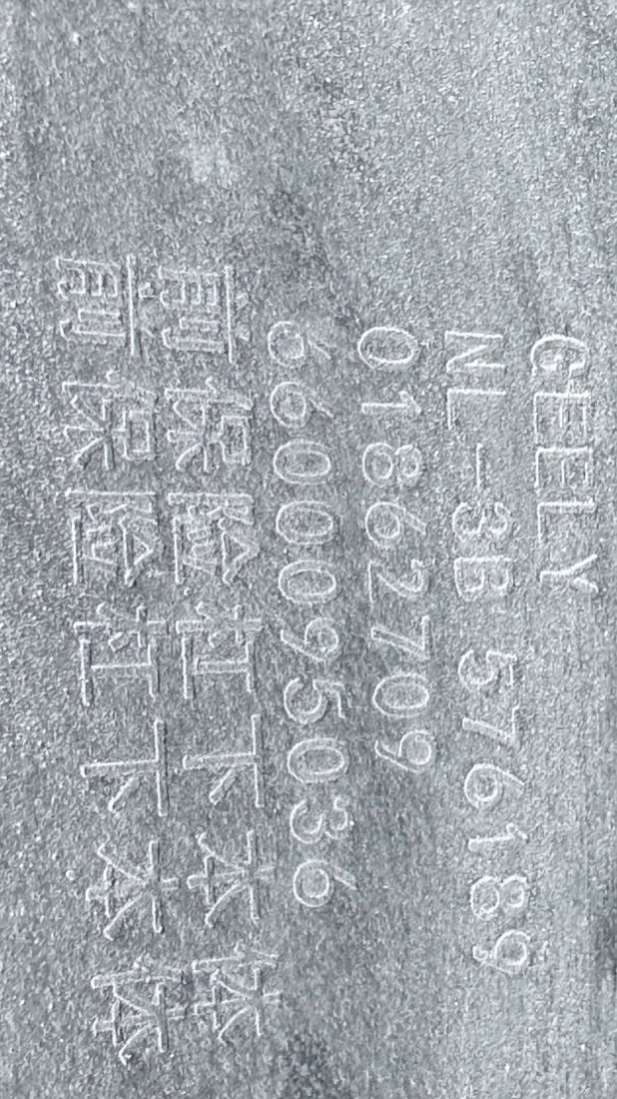 GEELY
NL-3B 576189
01862709
6600095036
前保险杠下本体
前保险杠下本体